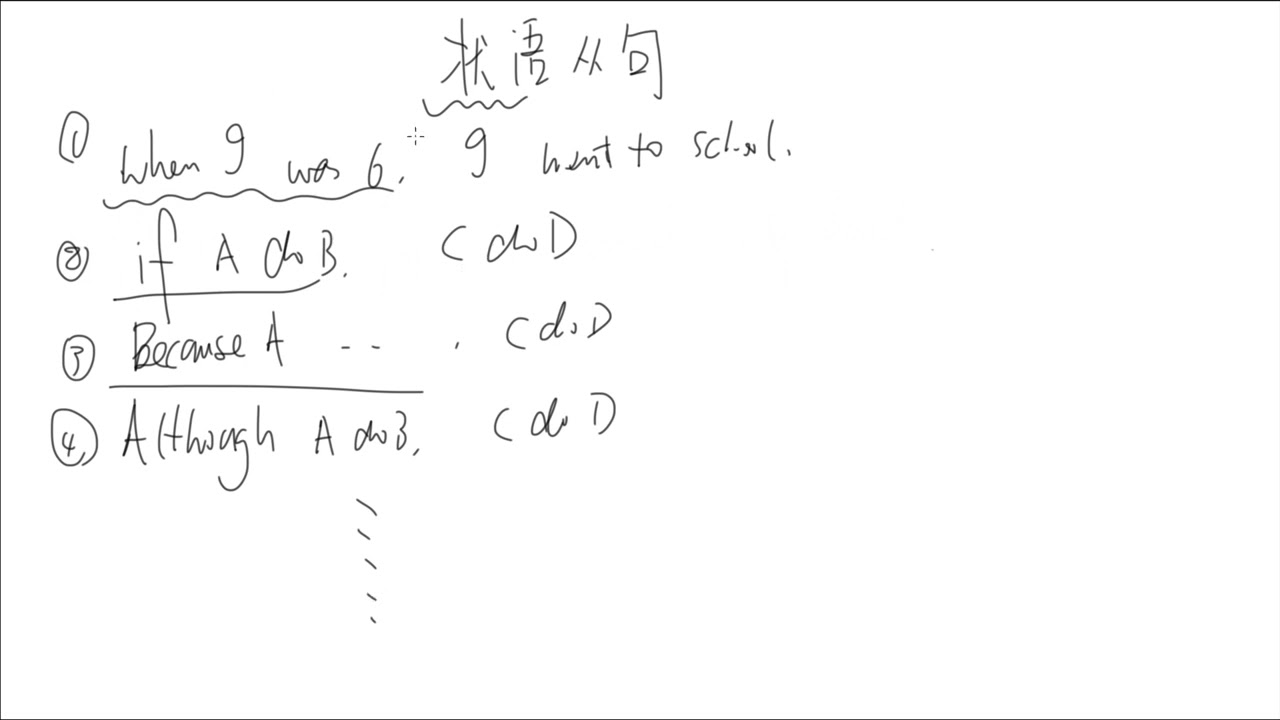 状语从句
① When I was 6, I went to school.
② if A do B, C do D
③ Because A -- , C do D
④ Although A do B, C do D